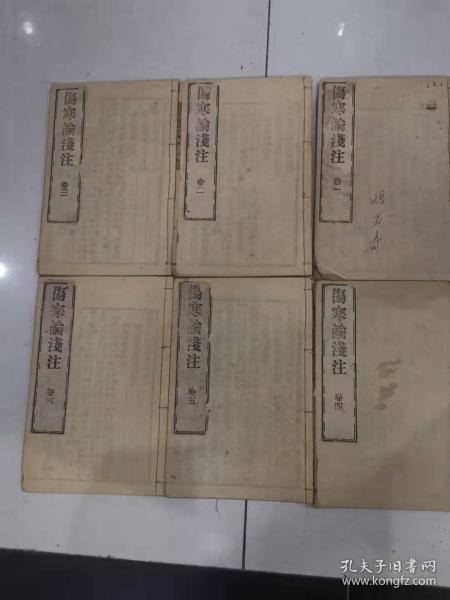 傷寒論淺注
卷三
傷寒論淺注
卷二
傷寒論淺注
卷一
傷寒論淺注
卷六
傷寒論淺注
卷五
傷寒論淺注
卷四
孔夫子旧书网
www.kongfz.com